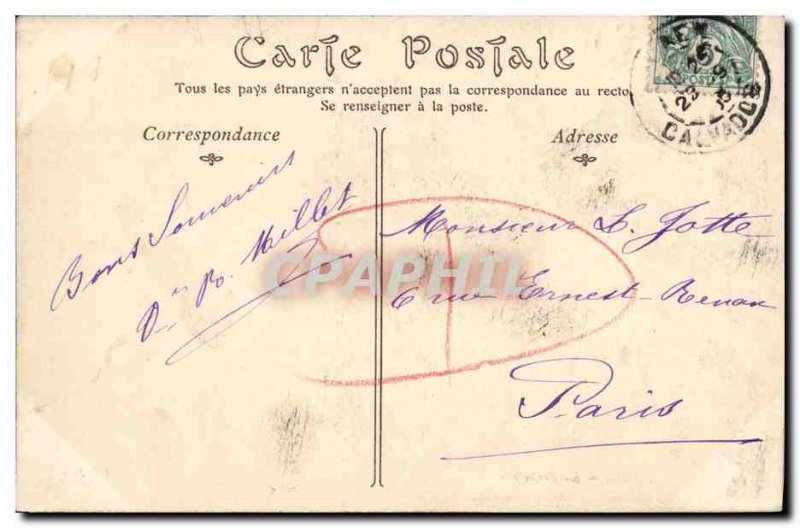 Carte Postale
Tous les pays étrangers n'acceptent pas la correspondance au recto
Se renseigner à la poste.
Correspondance
Adresse
Bons Souvenirs
Millet
Monsieur L. Jotte
6 rue Ernest-Renan
Paris
CALVADOS
CPAPHIL